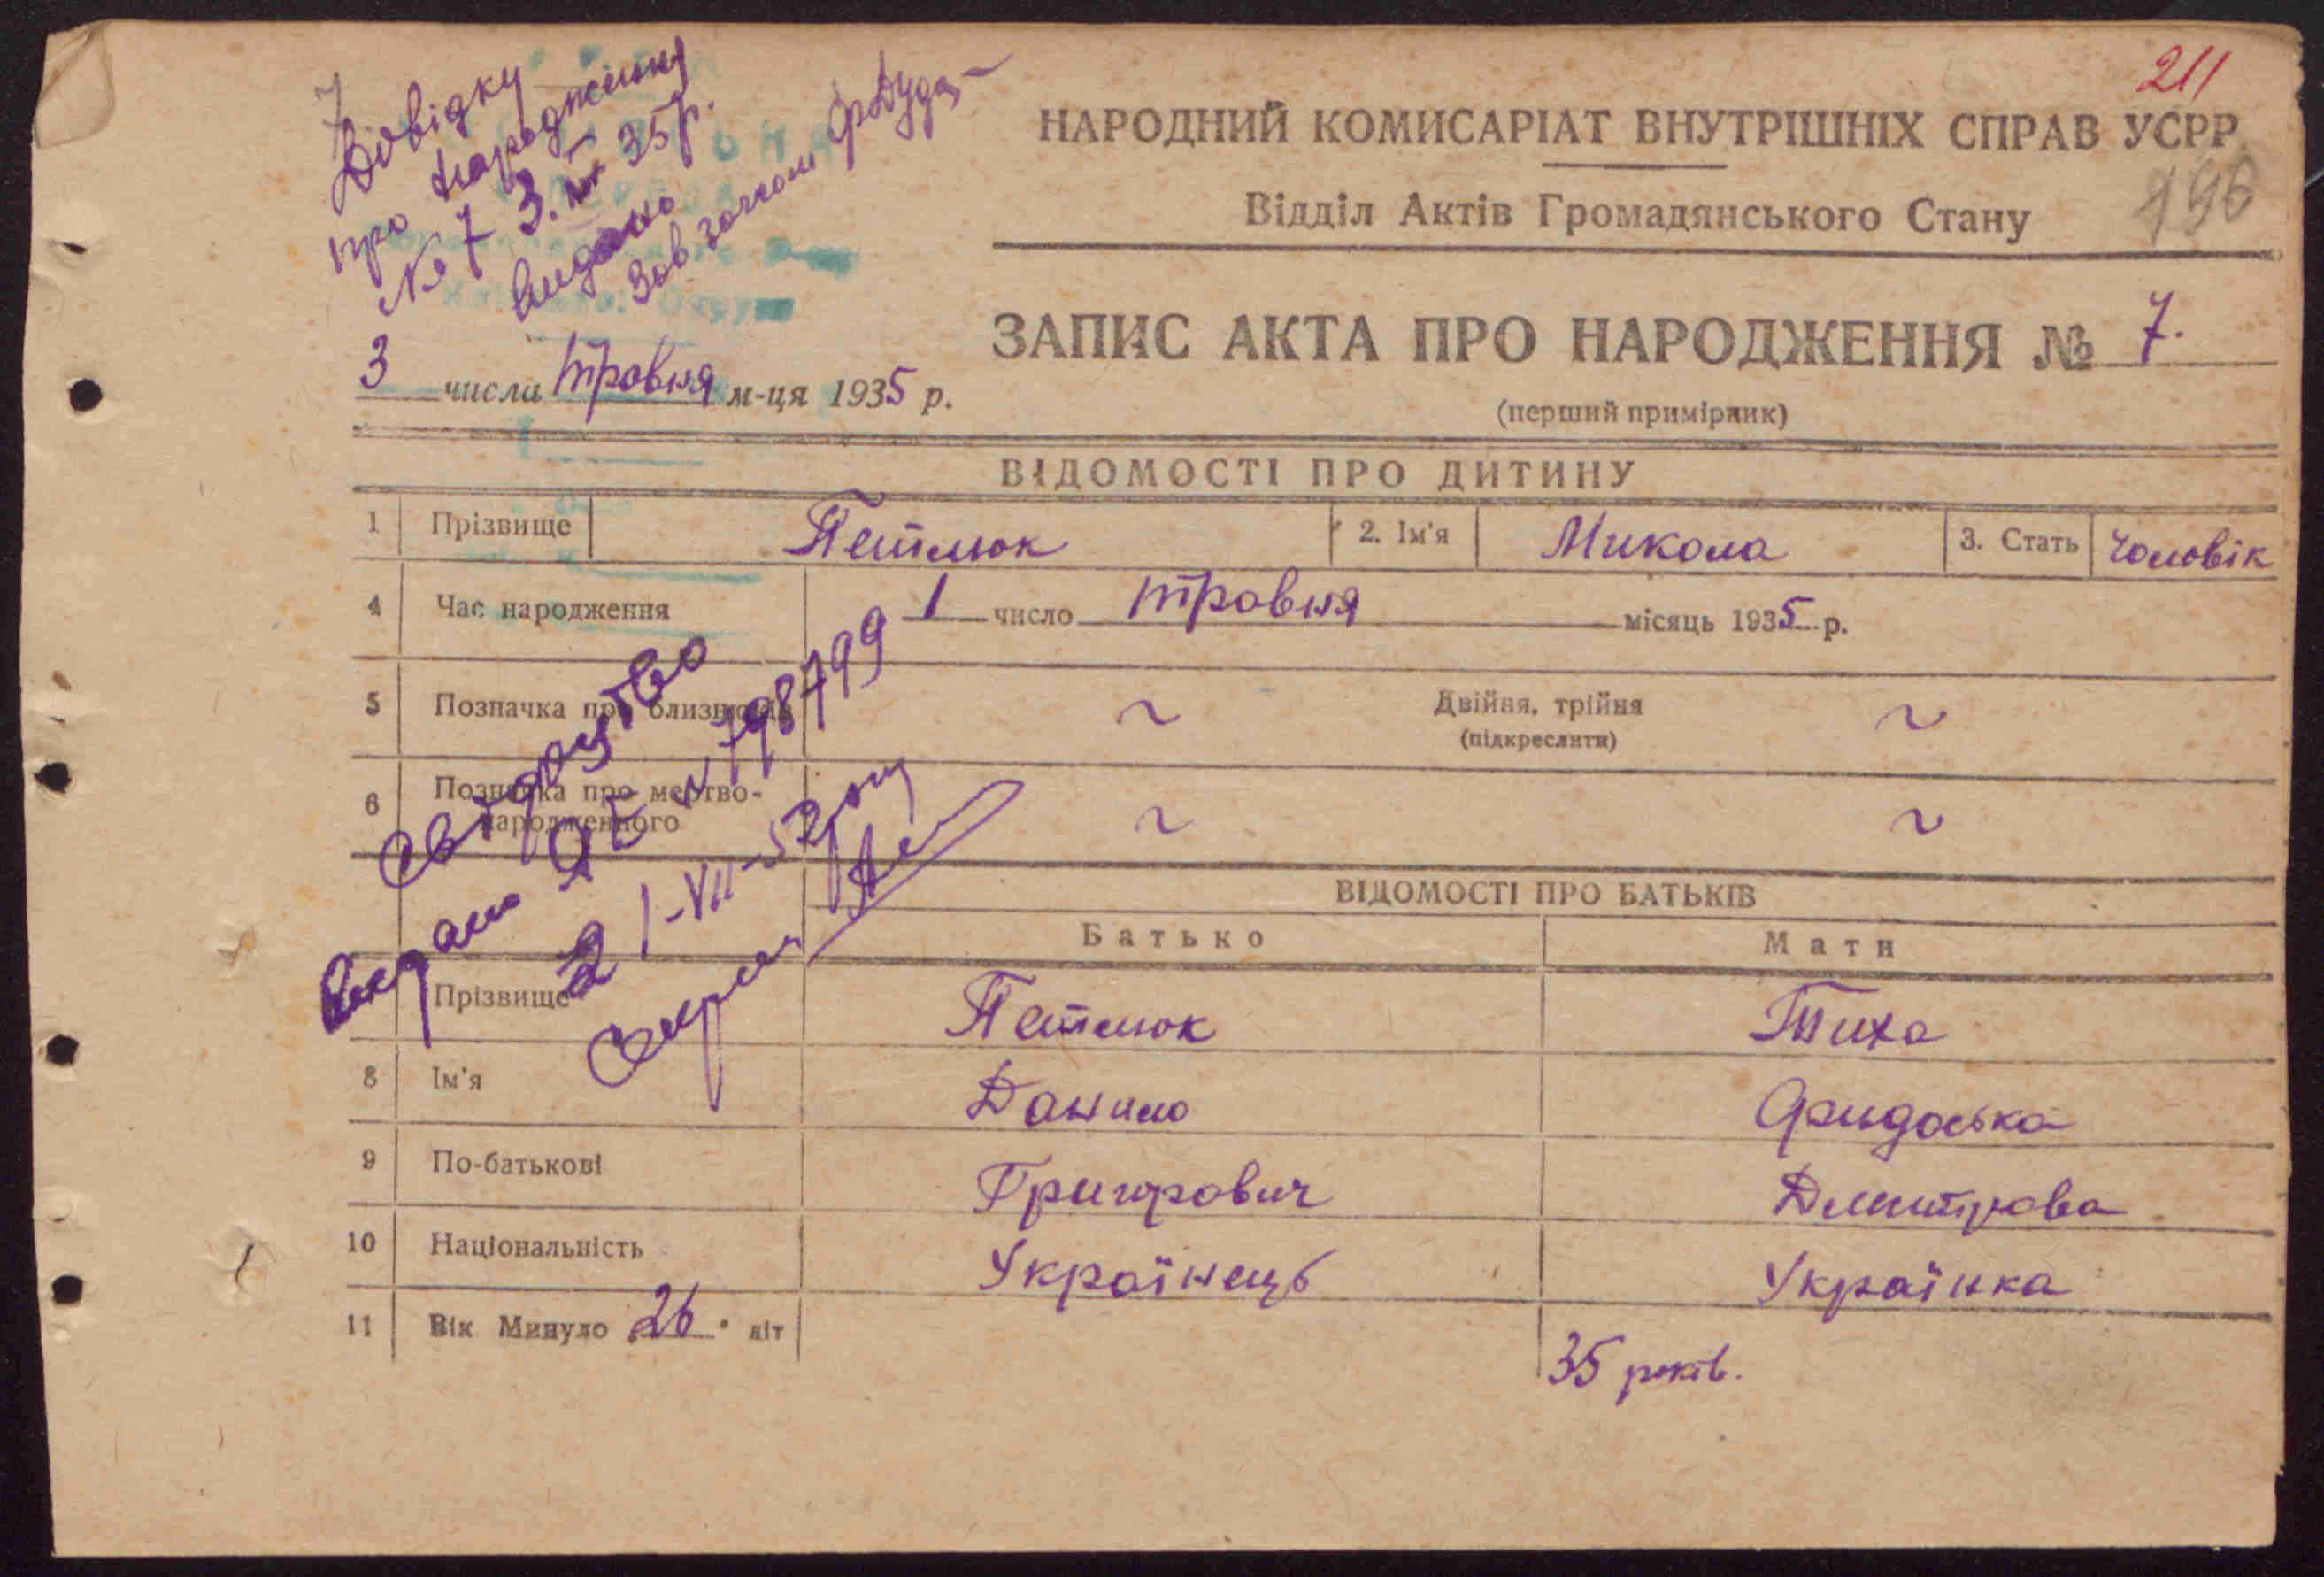 211
НАРОДНИЙ КОМИСАРІАТ ВНУТРІШНІХ СПРАВ УСРР
196
Відділ Актів Громадянського Стану
Довідку
про народження
№ 7 3. 35 р.
видано
Зав загсом
ЗАПИС АКТА ПРО НАРОДЖЕННЯ № 7.
3 числа травня м-ця 1935 р.
(перший примірник)
ВІДОМОСТІ ПРО ДИТИНУ
1 Прізвище Петлюк 2. Ім'я Микола 3. Стать чоловік
4 Час народження 1 число травня місяць 1935 р.
5 Позначка про близнюків ~ Двійня, трійня ~
(підкреслити)
6 Позначка про мертво-
народженного ~ ~
798799
видано 21-VII-52
ВІДОМОСТІ ПРО БАТЬКІВ
Батько Мати
Прізвище Петлюк Тиха
8 Ім'я Данило
9 По-батькові Григорович Дмитрова
10 Національність Українець Українка
11 Вік Минуло 26 літ 35 років.